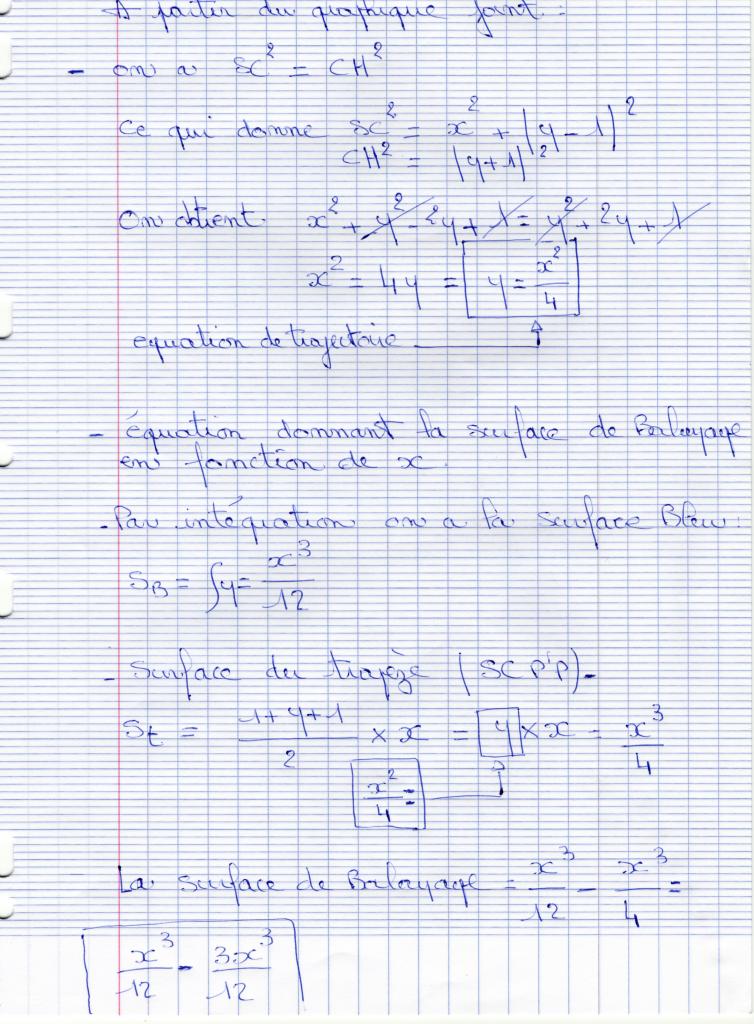 A partir du graphique joint :
- on a SC² = CH²
Ce qui donne SC² = x² + (y - 1)²
CH² = (y+1)²
On obtient x² + y² - 2y + 1 = y² + 2y + 1
x² = 4y = y = x²/4
equation de trajectoire
- équation donnant la surface de Balayage
en fonction de x.
- Par intégration on a la surface Bleu :
SB = ∫y = x³/12
- Surface du trapèze (SCP'P) -
St = (1+y+1)/2 × x = y × x = x³/4
x²/4 =
La surface de Balayage = x³/12 - x³/4 =
x³/12 - 3x³/12